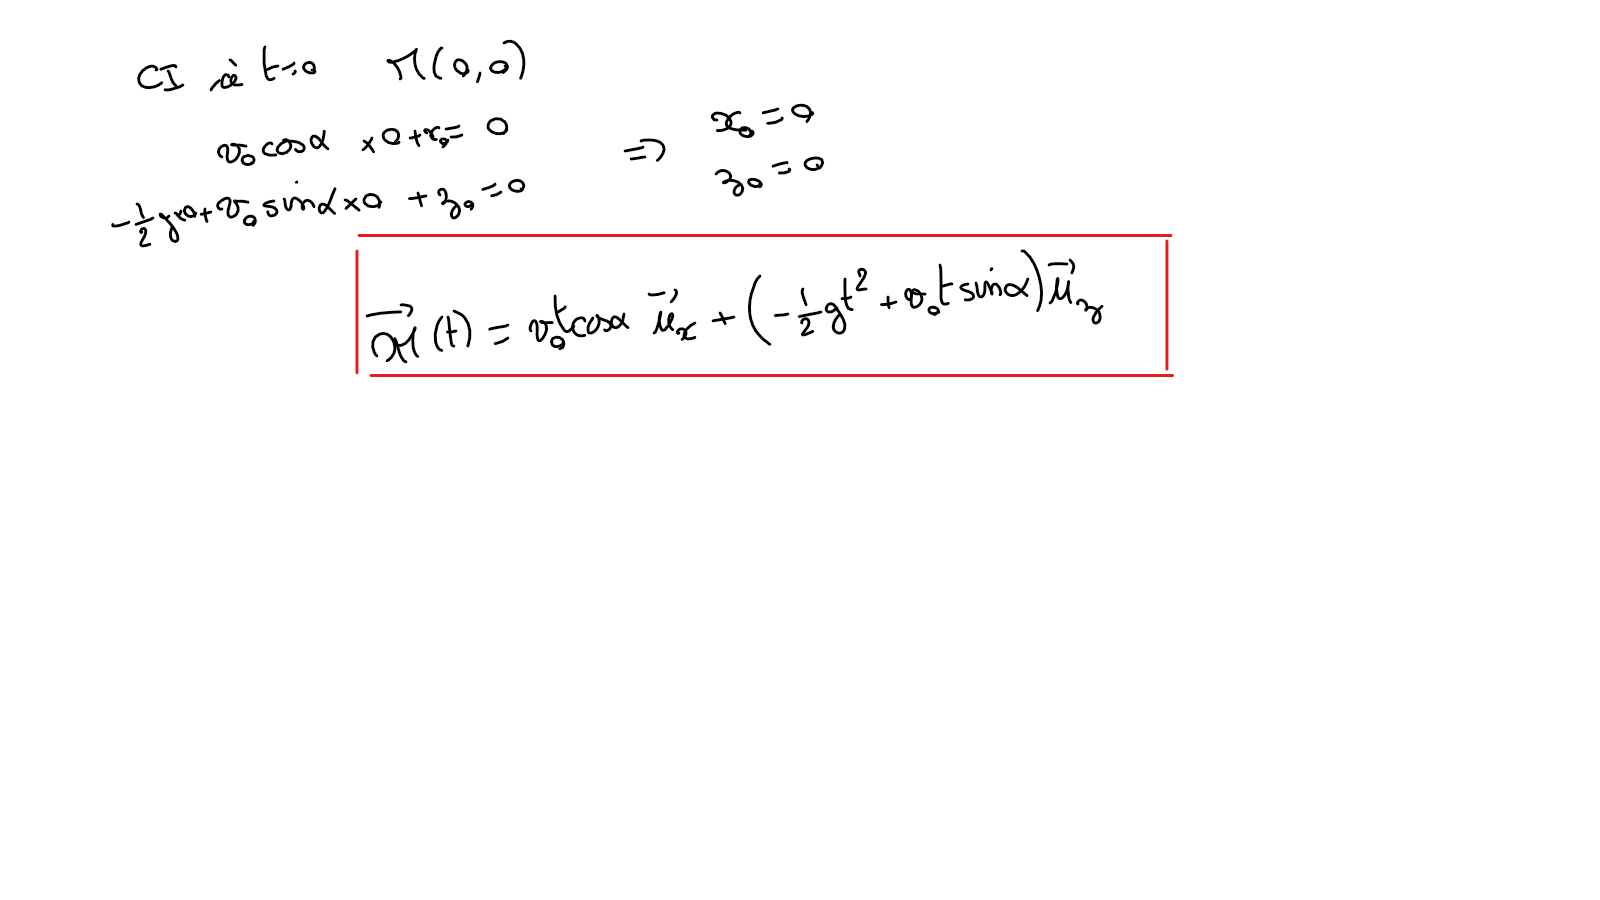 CI à t=0 M(0,0)
v₀ cosα ×0 + x₀ = 0
-1/2 g×0 + v₀ sinα×0 + z₀ = 0
⇒ x₀ = 0
z₀ = 0
OM⃗ (t) = v₀t cosα u⃗ₓ + (-1/2 gt² + v₀t sinα) u⃗_z